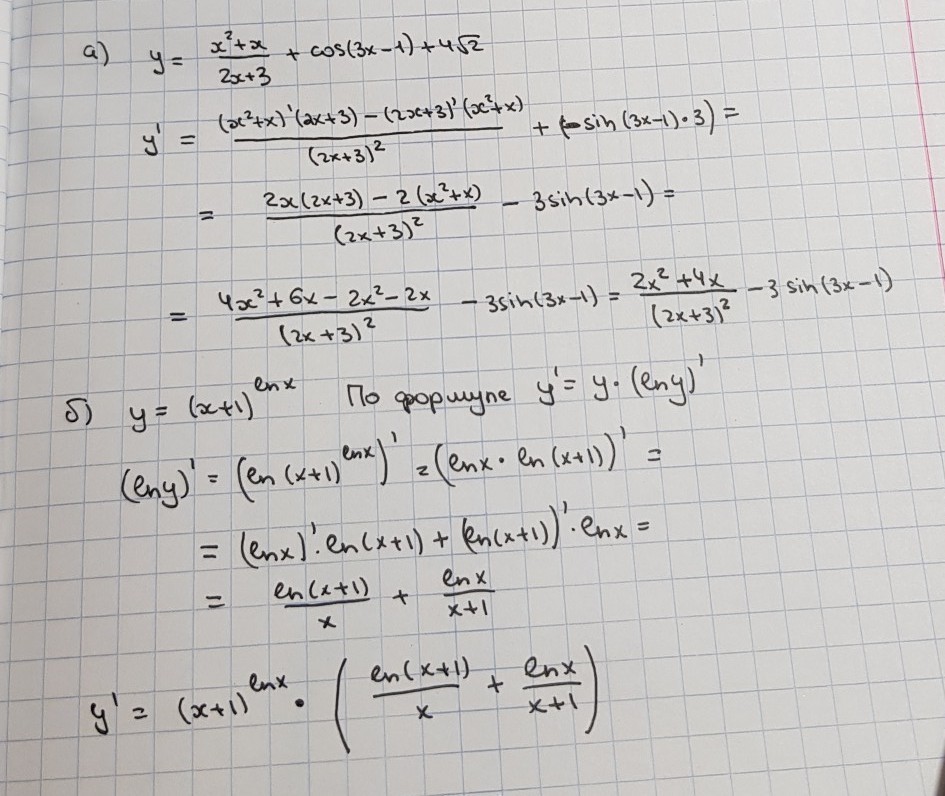 а) y = (x²+x)/(2x+3) + cos(3x-1) + 4√2
y' = ((x²+x)'(2x+3) - (2x+3)'(x²+x))/(2x+3)² + (-sin(3x-1)·3) =
= (2x(2x+3) - 2(x²+x))/(2x+3)² - 3sin(3x-1) =
= (4x²+6x-2x²-2x)/(2x+3)² - 3sin(3x-1) = (2x²+4x)/(2x+3)² - 3sin(3x-1)
б) y = (x+1)^(ln x) По формуле y' = y·(ln y)'
(ln y)' = (ln (x+1)^(ln x))' = (ln x · ln (x+1))' =
= (ln x)'·ln(x+1) + (ln(x+1))'·ln x =
= ln(x+1)/x + ln x/(x+1)
y' = (x+1)^(ln x) · (ln(x+1)/x + ln x/(x+1))